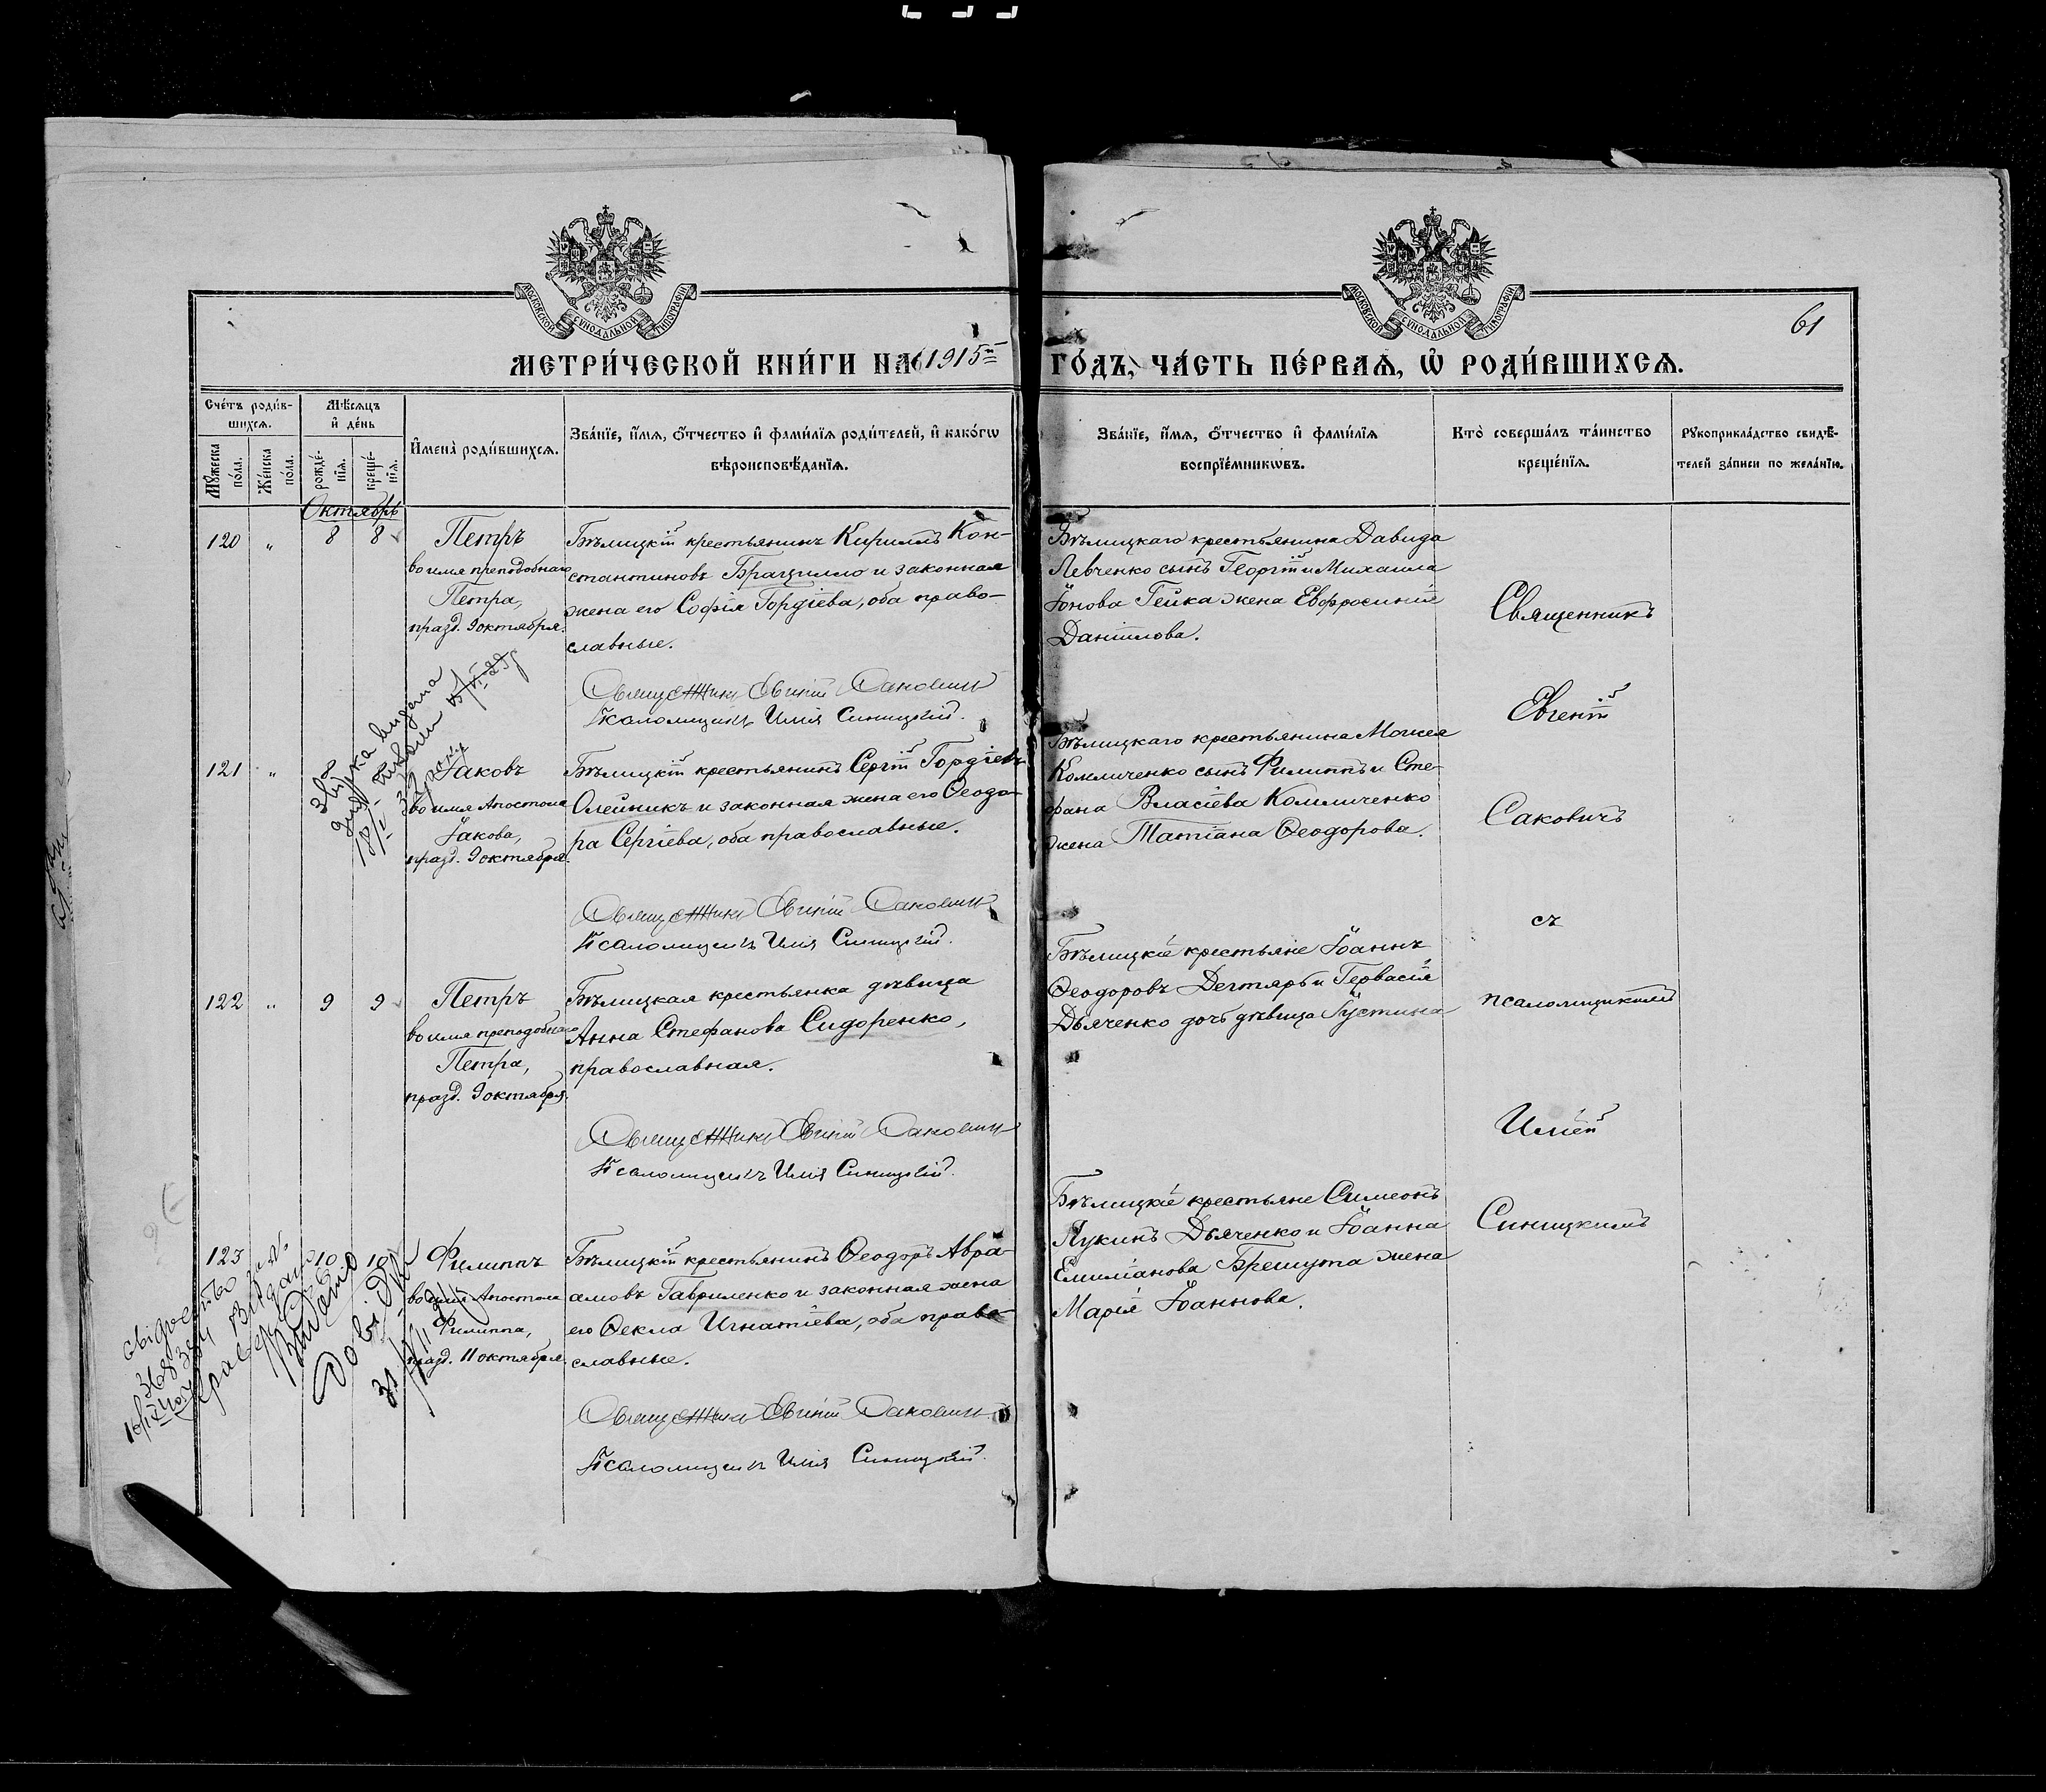 МОСКОВСКОЙ СѴНОДАЛЬНОЙ ТИПОГРАФІИ
МОСКОВСКОЙ СѴНОДАЛЬНОЙ ТИПОГРАФІИ
61
МЕТРИ́ЧЕСКОЙ КНИ́ГИ НА 1915й ГО́ДЪ, ЧА́СТЬ ПЕ́РВАЯ, Ѡ РОДИ́ВШИХСЯ.
Сче́тъ роди́в-
шихся.
Мѣ́сяцъ
и҆ де́нь
Мꙋ́жеска
по́ла.
Же́нска
по́ла.
рожде́-
нїя.
креще́-
нїя.
И҆мена̀ роди́вшихся.
Зва́нїе, и҆́мя, ѻ҆́тчество и҆ фами́лїя роди́телей, и҆ како́гѡ
вѣроисповѣ́данїя.
Зва́нїе, и҆́мя, ѻ҆́тчество и҆ фами́лїя
воспрїе́мникѡвъ.
Кто̀ соверша́лъ та́инство
креще́нїя.
Рꙋкоприкла́дство свидѣ́-
телей за́писи по жела́нїю.
Октябрь
120 „ 8 8
Петръ
во имя преподобнаго
Петра,
празд. 9 октября.
Бѣлицкій крестьянинъ Кириллъ Кон-
стантиновъ Брацилло и законная
жена его Софія Гордіева, оба право-
славные.
Священникъ Евгеній Саковичъ
Псаломщикъ Илія Синицкій.
Бѣлицкаго крестьянина Давида
Левченко сынъ Георгій и Михаила
Іонова Гейка жена Евфросинія
Даніилова.
Священникъ
Евгеній
Саковичъ
съ
псаломщикомъ
Иліей
Синицкимъ
121 „
Іаковъ
во имя Апостола
Іакова,
празд. 9 октября.
Бѣлицкій крестьянинъ Сергій Гордіевъ
Олейникъ и законная жена его Ѳеодо-
ра Сергіева, оба православные.
Священникъ Евгеній Саковичъ
Псаломщикъ Илія Синицкій.
Бѣлицкаго крестьянина Моисея
Комличенко сынъ Филиппъ и Сте-
фана Власіева Комличенко
жена Татіана Ѳеодорова.
122 „ 9 9
Петръ
во имя преподобнаго
Петра,
празд. 9 октября.
Бѣлицкая крестьянка дѣвица
Анна Стефанова Сидоренко,
православная.
Священникъ Евгеній Саковичъ
Псаломщикъ Илія Синицкій.
Бѣлицкіе крестьяне Іоаннъ
Ѳеодоровъ Дегтярь и Гервасія
Дьяченко дочь дѣвица Іустина
123 10 10
Филиппъ
во имя Апостола
Филиппа,
празд. 11 октября.
Бѣлицкій крестьянинъ Ѳеодоръ Авра-
амовъ Гавриленко и законная жена
его Ѳекла Игнатіева, оба право-
славные.
Священникъ Евгеній Саковичъ
Псаломщикъ Илія Синицкій.
Бѣлицкіе крестьяне Симеонъ
Лукинъ Дьяченко и Іоанна
Емиліанова Брешута жена
Марія Іоаннова.